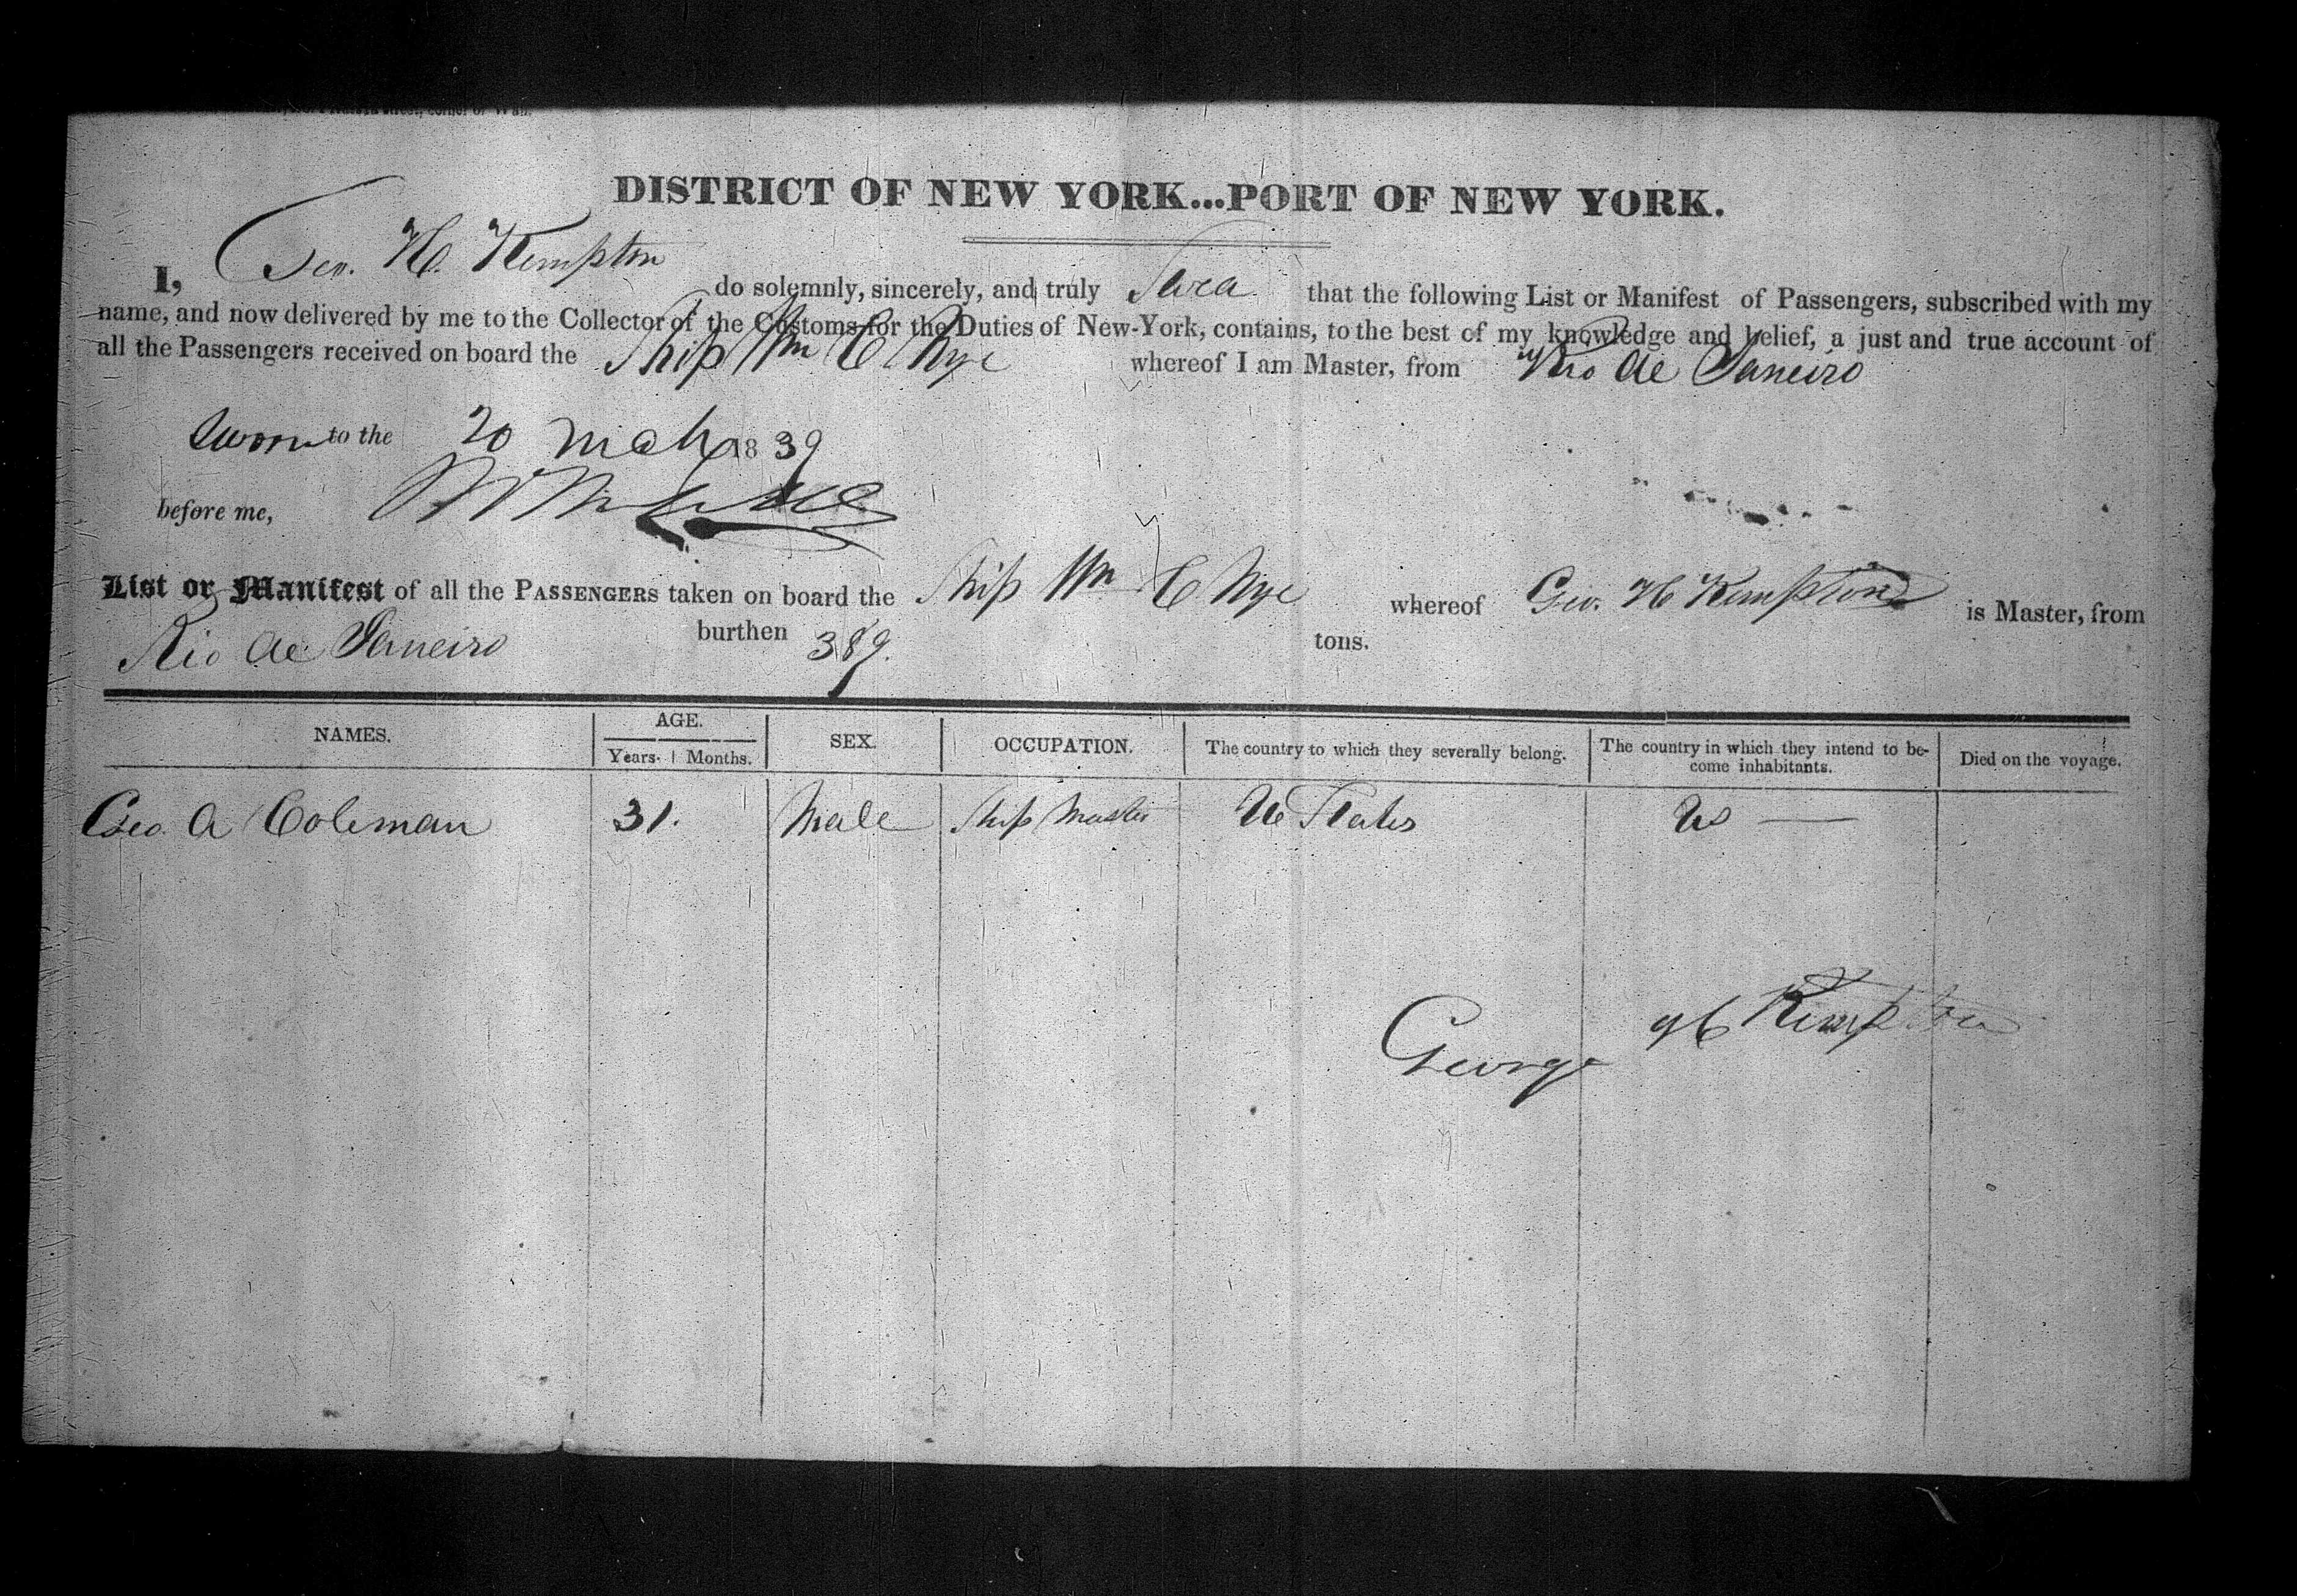 street, corner of Wall.
DISTRICT OF NEW YORK...PORT OF NEW YORK.
I, Geo. H. Kempton do solemnly, sincerely, and truly Swear that the following List or Manifest of Passengers, subscribed with my
name, and now delivered by me to the Collector of the Customs for the Duties of New-York, contains, to the best of my knowledge and belief, a just and true account of
all the Passengers received on board the Ship Wm C Nye whereof I am Master, from Rio de Janeiro
Sworn to the 20 Mch 1839
before me,
List or Manifest of all the PASSENGERS taken on board the Ship Wm C Nye whereof Geo. H Kempton is Master, from
Rio de Janeiro burthen 389. tons.
NAMES. AGE. SEX. OCCUPATION. The country to which they severally belong. The country in which they intend to be- Died on the voyage.
Years. Months. come inhabitants.
Geo. A Coleman 31. Male Ship Master U States US —
George H Kempton